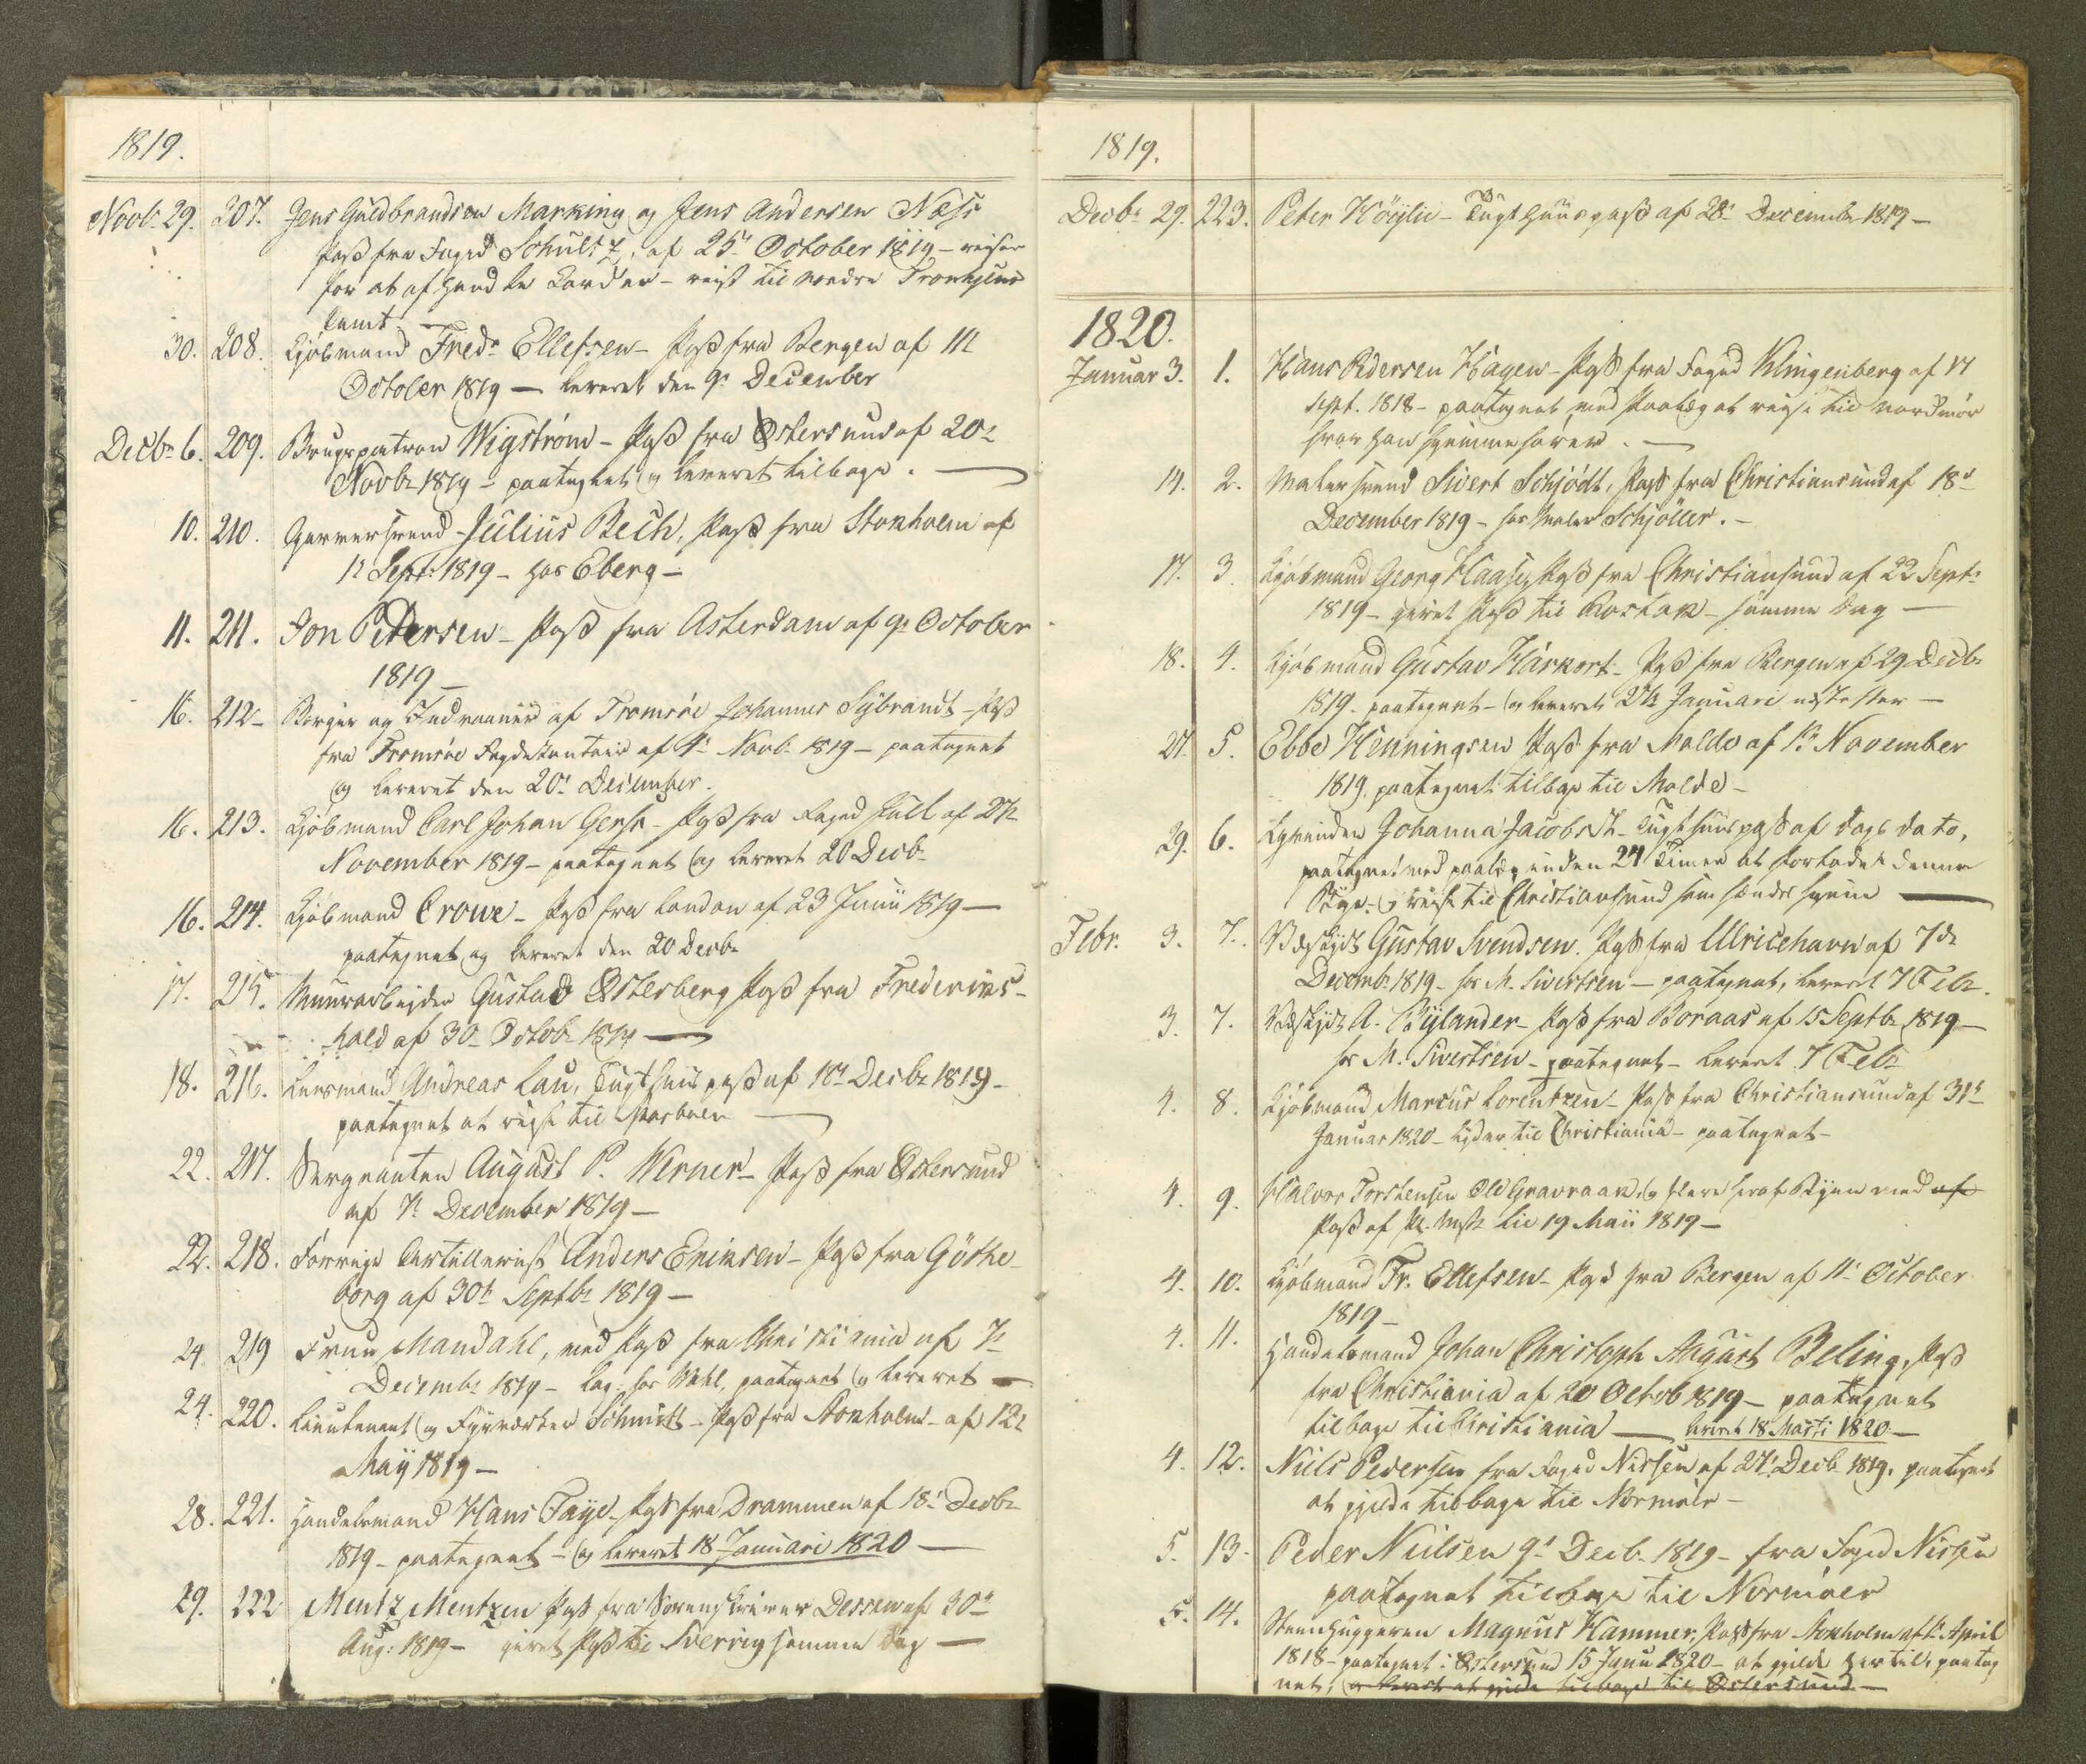 1819.
Novb. 29. 207. Jens Guldbrandsen Marking og Jens Andersen Næss
Pass fra Foged Schultz, af 25. October 1819 - reiser
for at afhandle - reist til nordre Tronhjems
Lamt
30. 208. Kjøbmand Fredr. Ellefsen - Pass fra Bergen af 11te
October 1819 - leveret den 9. December
Decbr. 6. 209. Brugspatron Wigstrøm - Pass fra Østersund af 20.
Novbr. 1819 - paategnet og leveret tilbage. -
10. 210. Garversvend Julius Bech, Pass fra Stokholm af
12 Sept: 1819 - hos Eberg -
11. 211. Jon Petersen - Pass fra Asterdam af 9. October
1819 -
16. 212 - Borger og af Tromsøe Johannes Sybrandt - Pass
fra Tromsøe Fogdekontoir af 4. Novb. 1819 - paategnet
og leveret den 20. December.
16. 213. Kjøbmand Carl Johan Gersh - Pass fra Foged Juell af 27.
November 1819 - paategnet og leveret 20 Decb.
16. 214. Kjøbmand Crowe - Pass fra London af 23 Junii 1819 -
paategnet og leveret den 20 Decbr.
17. 215. Muurarbeider Gustad Østerberg Pass fra Frederiks-
hald af 30. Octob. 1819 -
18. 216. Lensmand Andreas Lau, Tugthuuspass af 18. Decbr. 1819 -
paategnet at reise til
22. 217. Sergeanten August P. Werner - Pass fra Østersund
af 7. December 1819 -
22. 218. Forrige Artillerist Anders Eriksen - Pass fra Göthe-
borg af 30t. Septbr. 1819 -
24. 219 Fruu Mandahl, med Pass fra Christiania af 7.
Decemb. 1819 - Log. hos Wahl, paategnet og leveret -
24. 220. Lieutenant og Fyrværker Schmidt - Pass fra Stokholm - af 12.
Maij 1819 -
28. 221. Handelsmand Hans Faye - Pass fra Drammen af 18. Decbr.
1819 - paategnet - og leveret 18 Januari 1820 -
29. 222 Mentz Mentzen Pass fra Sorenskriver Dessen af 30te
Aug: 1819 - givet Pass til Sverrig samme Dag -
1819.
Decbr. 29. 223. Peter Höylie - Tugthuuspass af 28. December 1819 -
1820.
Januar 3. 1. Hans Pedersen Hagen - Pass fra Foged Klingenberg af 17
Sept. 1818 - paategnet med Paalæg at reise til Nordmør
hvor han hjemmehører. -
14. 2. Malersvend Sivert Schjödt, Pass fra Christiansund af 18d.
December 1819 - hos Maler Schjöller. -
17. 3. Kjøbmand Georg Haase, Pass fra Christiansund af 22 Sept.
1819 - givet Pass til Rostok - samme Dag -
18. 4. Kjøbmand Gustav Harkort - Pass fra Bergen af 29 Decbr.
1819. paategnet - og leveret 27. Januari
27. 5. Ebbe Henningsen Pass fra Molde af 17. November
1819. paategnet tilbage til Molde -
29. 6. Johanna Jacobsdt. - Tugthuuspass af Dags Dato,
paategnet med paalæg inden 24 Timer at forlade denne
Bye - og reise til Christiansund som hendes hjem -
Febr. 3. 7. Gustav Svendsen. Pass fra Ulricehavn af 7de
Decemb. 1819 - hos M. Sivertsen - paategnet, leveret 7 Febr.
3. 7. A. Bylander - Pass fra Boraas af 15 Septbr. 1819 -
hos M. Sivertsen - paategnet - leveret 7 Febr.
4. 8. Kjøbmand Marcus Lorentzen - Pass fra Christiansund af 31te
Januar 1820 - lyder til Christiania - paategnet -
4. 9. Halvor Torstensen Ole Gravraak, og flere fra Byen med af
Pass af 19 Maii 1819 -
4. 10. Kjøbmand Fr. Ellefsen - Pass fra Bergen af 11. October
1819 -
4. 11. Handelsmand Johan Christoph August Beling, Pass
fra Christiania af 20 Octob 1819 - paategnet
tilbage til Christiania - leveret 18 Marti 1820 -
4. 12. Niels Pedersen fra Foged Nissen af 27. Decb. 1819. paategnet
at gjelde tilbage til Normøer -
5. 13. Peder Nielsen 9. Decb. 1819 - fra Foged Nissen
paategnet tilbage til Normøer
5. 14. Steenhuggeren Magnus Hammer, Pass fra Stokholm af 11. April
1818 - paategnet i Østersund 15 Janu 1820 - at gjelde hertil, paateg
net, og leveret at gjelde tilbage til Østersund -